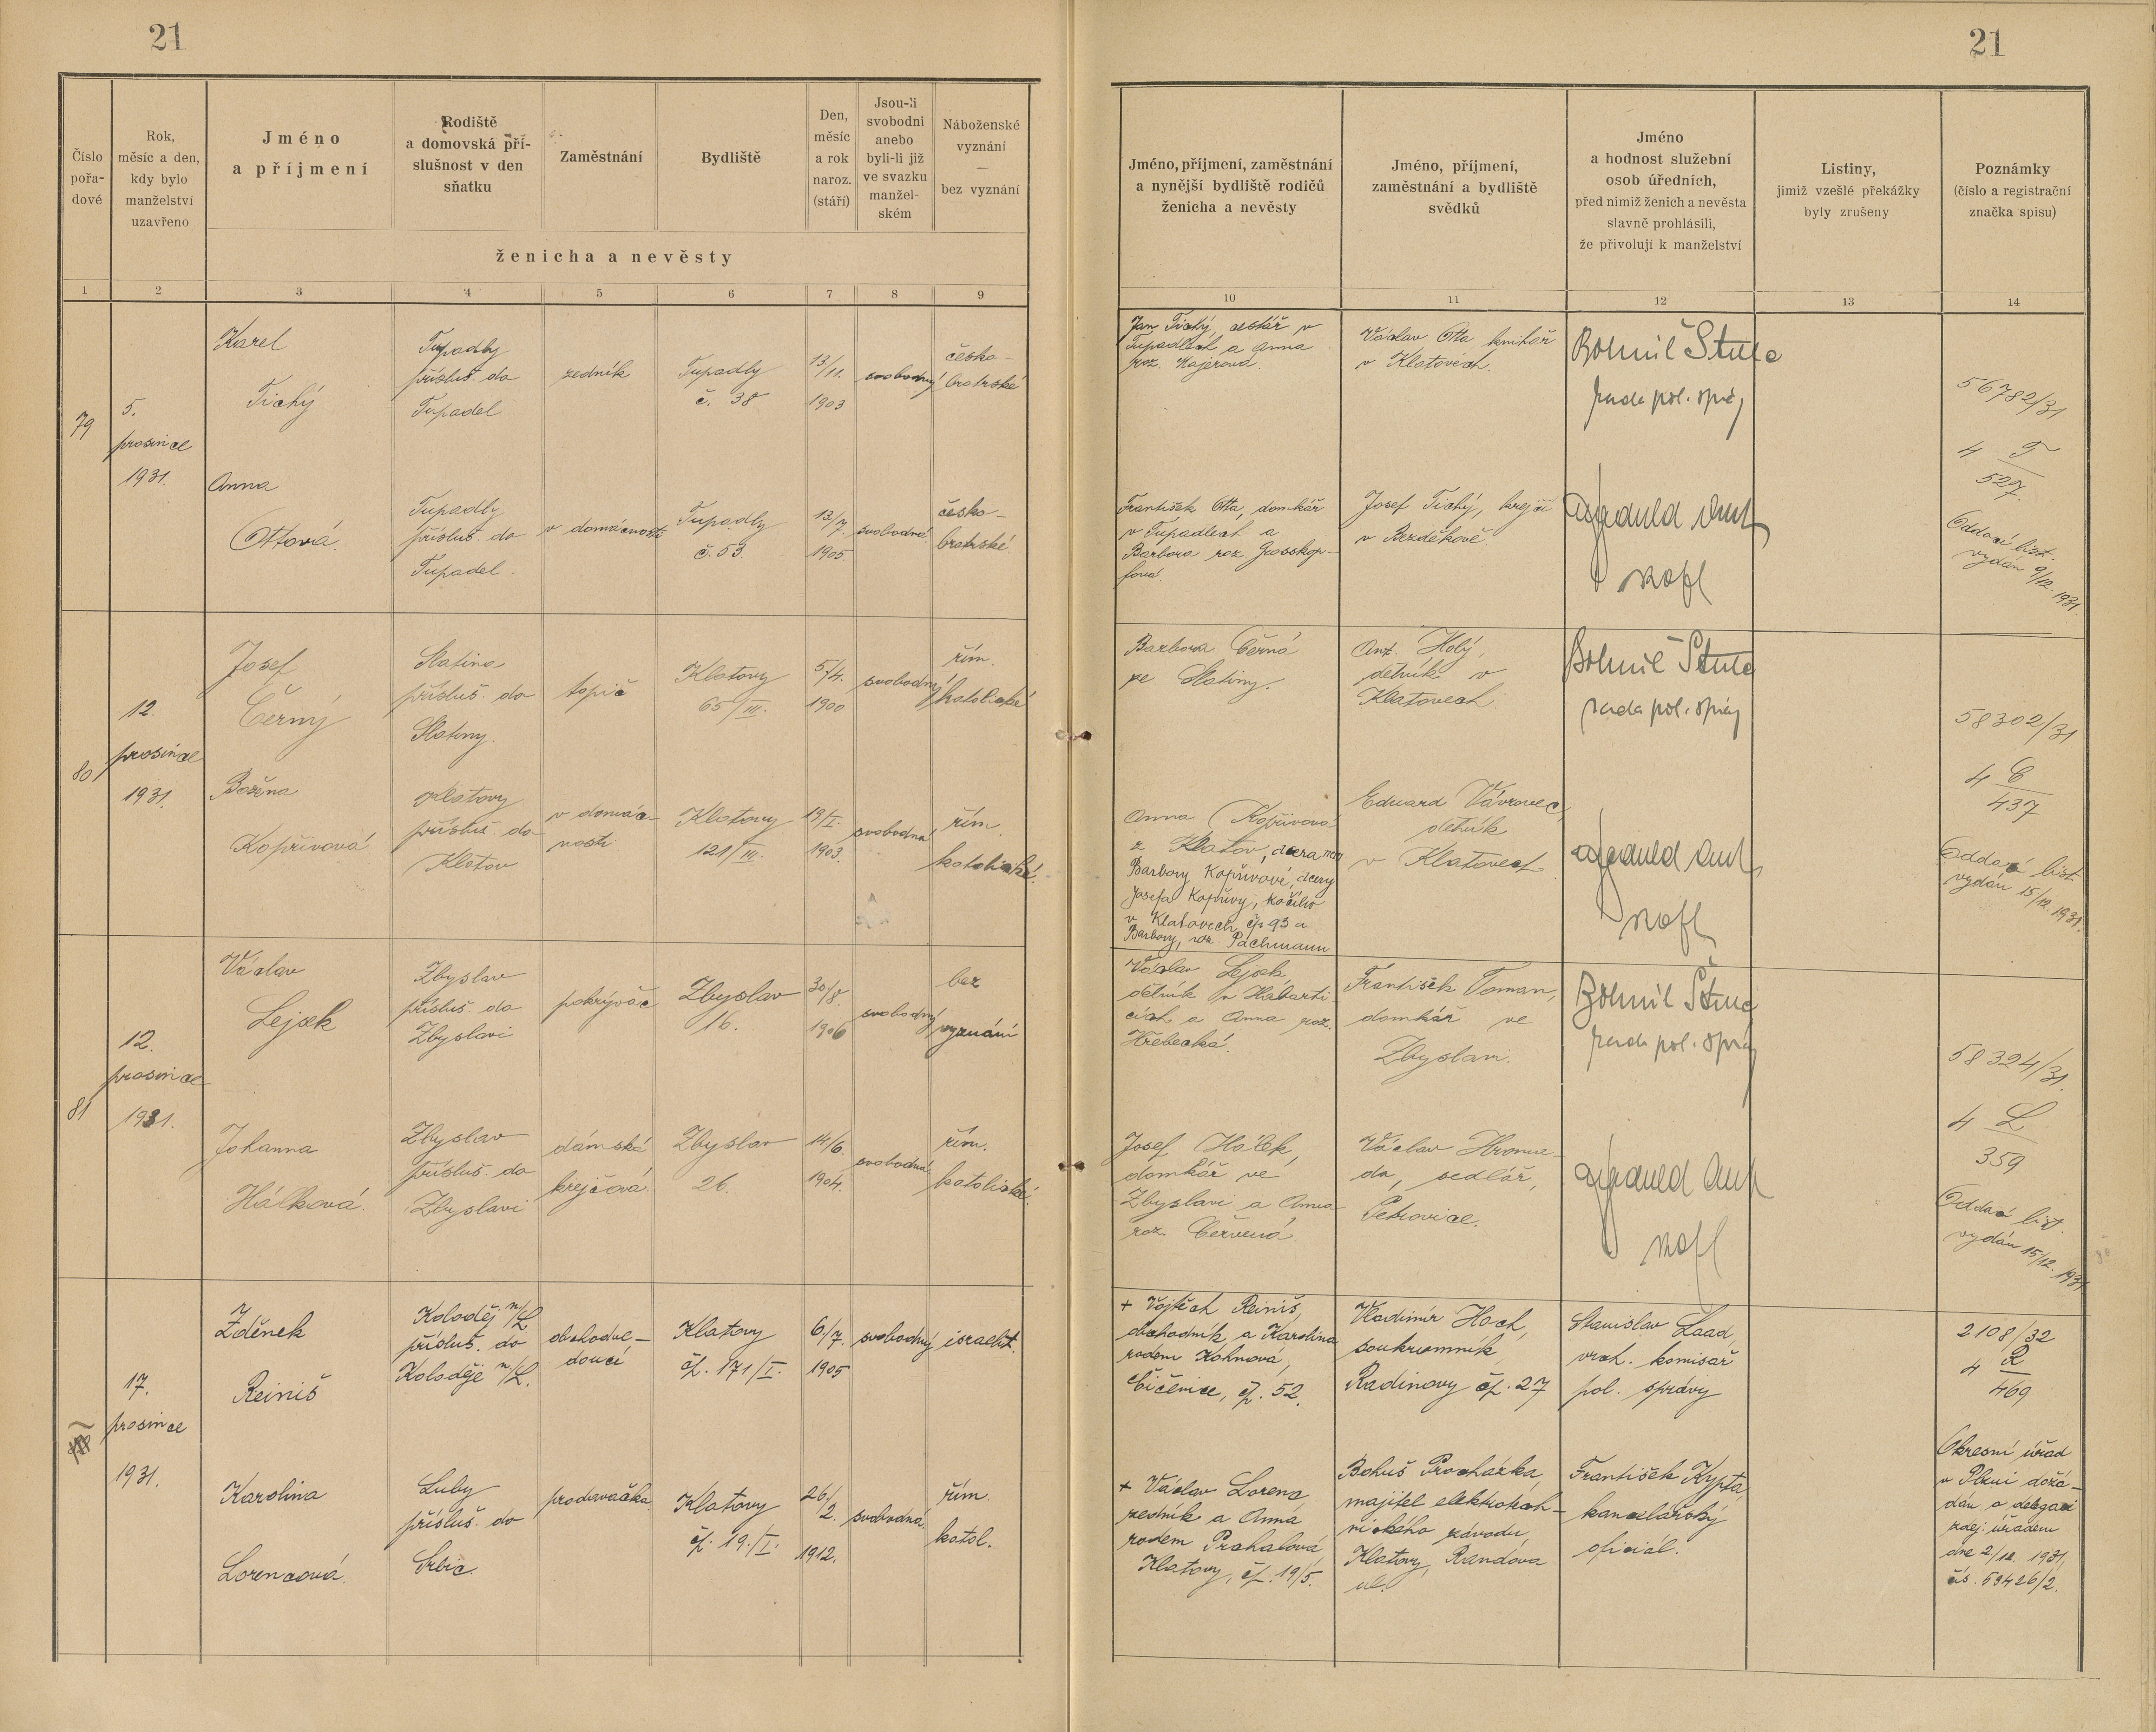 21
21
Číslo
pořa-
dové
Rok,
měsíc a den,
kdy bylo
manželství
uzavřeno
Jméno
a příjmení
Rodiště
a domovská pří-
slušnost v den
sňatku
Zaměstnání
Bydliště
Den,
měsíc
a rok
naroz.
(stáří)
Jsou-li
svobodni
anebo
byli-li již
ve svazku
manžel-
ském
Náboženské
vyznání
—
bez vyznání
ženicha a nevěsty
Jméno, příjmení, zaměstnání
a nynější bydliště rodičů
ženicha a nevěsty
Jméno, příjmení,
zaměstnání a bydliště
svědků
Jméno
a hodnost služební
osob úředních,
před nimiž ženich a nevěsta
slavně prohlásili,
že přivolují k manželství
Listiny,
jimiž vzešlé překážky
byly zrušeny
Poznámky
(číslo a registrační
značka spisu)
1 2 3 4 5 6 7 8 9
10 11 12 13 14
79
5.
prosince
1931.
Karel
Tichý
Tupadly
přísluš. do
Tupadel
zedník
Tupadly
č. 38
13/11.
1903
svobodný
česko-
bratrské
Jan Tichý, cestář v
Tupadlech a Anna
roz. Majerová
Václav Otta kmihař
v Klatovech.
Bohmil
rada pol. správ
56782/31
4 T
527.
Oddací list.
vydán 9/12. 1931
Anna
Ottová.
Tupadly
přísluš. do
Tupadel.
v domácnosti
Tupadly
č. 53.
13/7.
1905.
svobodná.
česko-
bratrské.
František Otta, domkář
v Tupadlech a
Barbora roz. Grosskop-
fová.
Josef Tichý, krejčí
v Bezděkově.
80
12.
prosince
1931.
Josef
Černý
Slatina
přísluš. do
Slatiny.
topič
Klatovy
65/III.
5/4.
1900
svobodný
řím.
katolické
Barbora Černá
ze Slatiny.
Ant. Holý,
dělník v
Klatovech.
Bohmil
rada pol. správ
58302/31
4 C
437
Oddací list
vydán 15/12. 1931.
Božena
Kopřivová
Klatovy
přísluš. do
Klatov
v domác-
nosti
Klatovy
121/III.
19/I.
1903.
svobodná
řím.
katolické.
Anna Kopřivová
z Klatov, dcera
Barbory Kopřivové, dcery
Josefa Kopřivy, kočího
v Klatovech čp. 93 a
Barbory, roz. Pachmann
Eduard Vávrovec,
dělník
v Klatovech
81
12.
prosince
1931.
Václav
Lejsek
Zbyslav
přísluš. do
Zbyslavi
pokrývač
Zbyslav
16.
30/8.
1906
svobodný
bez
vyznání
Václav Lejsek,
dělník v Habarti-
cích a Anna roz.
Hřebecká.
František Toman,
domkář ve
Zbyslavi.
Bohmil
rada pol. správ
58324/31.
4 L
359
Oddací list.
vydán 15/12. 1931
Johanna
Hálková.
Zbyslav
přísluš. do
Zbyslavi
dámská
krejčová.
Zbyslav
26.
14/6.
1904.
svobodná.
řím.
katolické.
Josef Hálek,
domkář ve
Zbyslavi a Anna
roz. Červená
Václav Hromа-
da, sedlář,
Petrovice.
17.
prosince
1931.
Zděnek
Reiniš
Koloděj n/L
přísluš. do
Koloděje n/L.
obchodve-
doucí
Klatovy
čp. 171/I.
6/7.
1905
svobodný
israelit.
+ Vojtěch Reiniš,
obchodník a Karolina
rodem Kohnová,
Čičenice, čp. 52.
Vladimír Hoch,
soukromník
Radinovy čp. 27
Stanislav Laad,
vrch. komisař
pol. správy
2108/32
4 R
469
Karolina
Lorencová.
Luby
přísluš. do
Srbic.
prodavačka
Klatovy
čp. 19./I.
26/2.
1912.
svobodná
řím.
katol.
+ Václav Lorenc
zedník a Anna
rodem Prahalová
Klatovy, čp. 19/5.
Bohuš Procházka,
majitel elektrotech-
nického závodu,
Klatovy, Randova
ul.
František Kypta,
kancelářský
oficiál.
Okresní úřad
v Plzni dožá-
dán o delegaci
zdej. úřadem
dne 2./12. 1931,
čís. 59426/2.